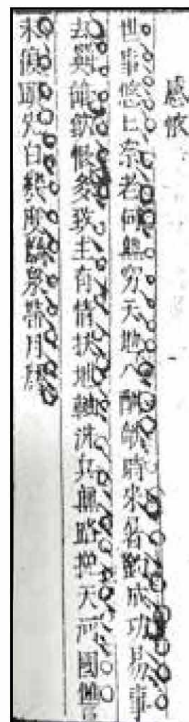 感懷
世事悠〻奈老何無窮天地入酣歌時來屠釣成功易事
去英雄飲恨多致主有懷扶地軸洗兵無路挽天河國讐
未復頭先白幾度龍泉帶月磨